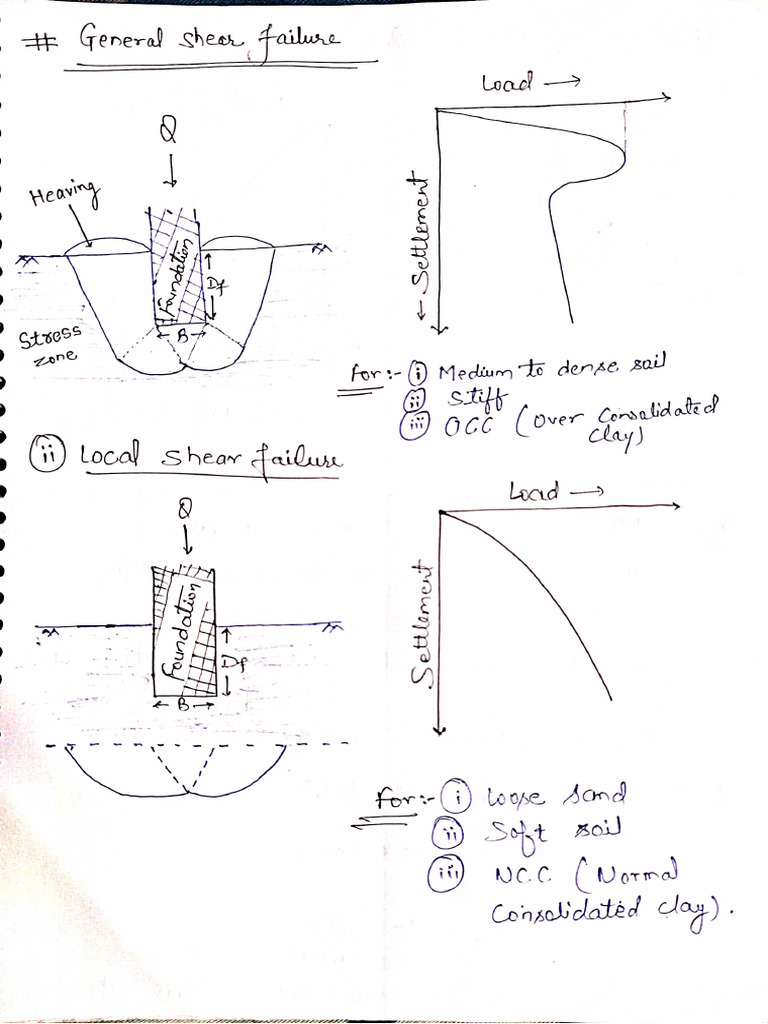 # General Shear failure
Load →
Q
Heaving
← Settlement
Foundation
Df
B
Stress
zone
For:- (i) Medium to dense soil
(ii) Stiff
(iii) OCC (Over Consolidated
Clay)
(ii) Local Shear failure
Load →
Q
Settlement
Foundation
Df
B
For:- (i) Loose Sand
(ii) Soft soil
(iii) NCC (Normal
Consolidated Clay).